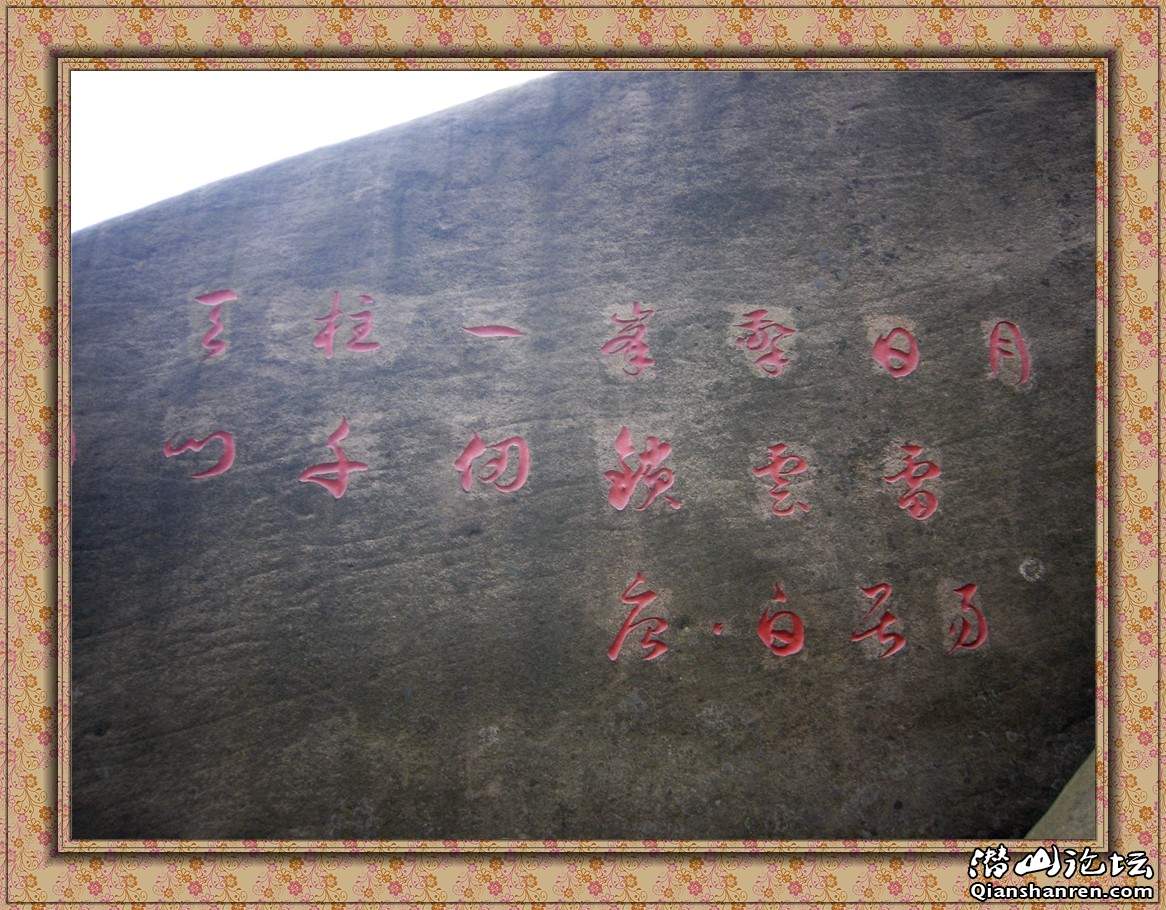 天柱一峯擎日月
门千仞鎖雲雷
唐·白居易
潜山论坛
Qianshanren.com